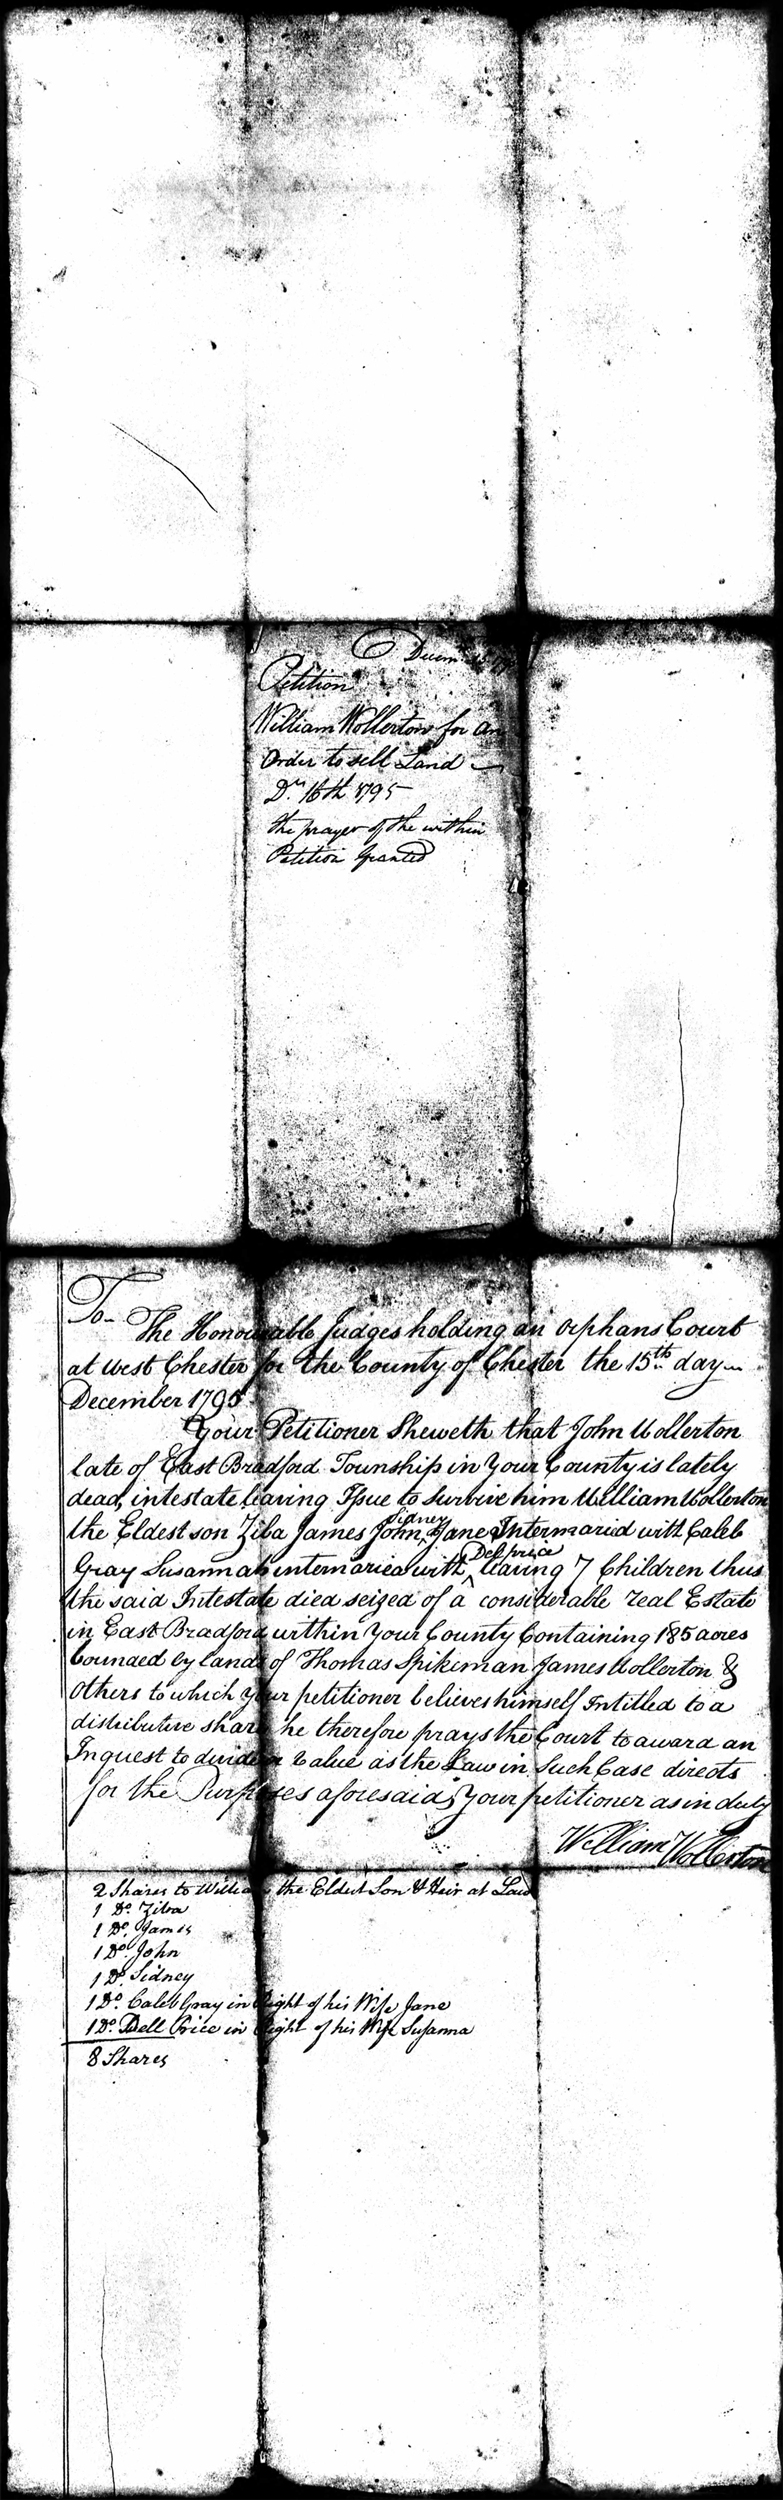 Decem
Petition
William Wollerton for an
Order to sell Land
Dr. 16th 1795
the prayer of the within
Petition Granted
To
The Honourable Judges holding an orphans Court
at west Chester for the County of Chester the 15th day
December 1795
Your Petitioner Sheweth that John Wollerton
late of East Bradford Township in Your County is lately
dead, intestate leaving Issue to survive him William Wollerton
the Eldest son Ziba James John, Sidney Jane Intermaried with Caleb
Gray Susannah intermaried with Dell price leaving 7 Children thus
the said Intestate died seized of a considerable real Estate
in East Bradford within Your County Containing 185 acres
bounded by lands of Thomas Spikeman James Wollerton &
others to which your petitioner believes himself Intitled to a
distributive share he therefore prays the Court to award an
Inquest to divide or Value as the Law in Such Case directs
for the Purposes aforesaid; Your petitioner as in duty
William Wollerton
2 Shares to William the Eldest Son & Heir at Law
1 Do. Ziba
1 Do. James
1 Do. John
1 Do. Sidney
1 Do. Caleb Gray in Right of his Wife Jane
1 Do. Dell Price in Right of his Wife Susanna
8 Shares